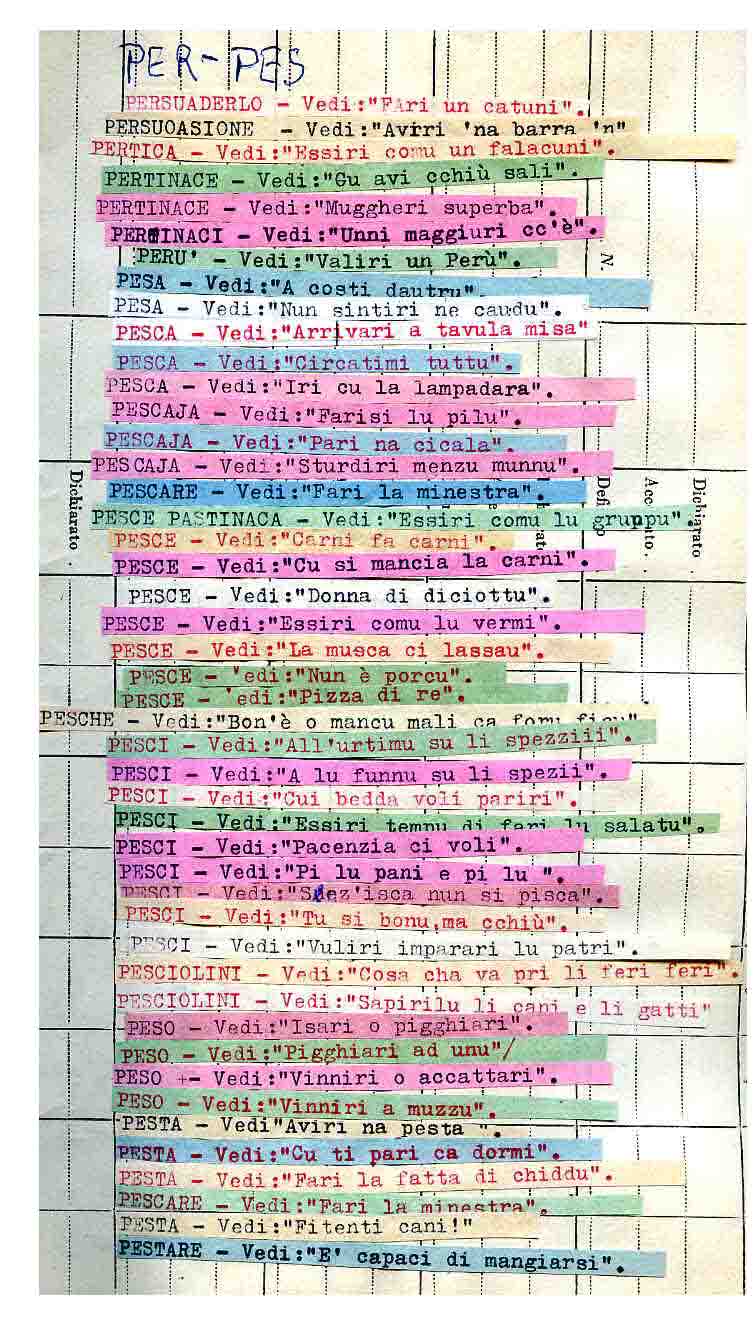 PER-PES
PERSUADERLO - Vedi:"Fari un catuni".
PERSUOASIONE - Vedi:"Aviri 'na barra 'n"
PERTICA - Vedi:"Essiri comu un falacuni".
PERTINACE - Vedi:"Cu avi cchiù sali".
PERTINACE - Vedi:"Muggheri superba".
PERTINACI - Vedi:"Unni maggiuri cc'è".
PERU' - Vedi:"Valiri un Perù".
N.
PESA - Vedi:"A costi dautru".
PESA - Vedi:"Nun sintiri ne caudu".
PESCA - Vedi:"Arrivari a tavula misa"
PESCA - Vedi:"Circatimi tuttu".
PESCA - Vedi:"Iri cu la lampadara".
PESCAJA - Vedi:"Farisi lu pilu".
PESCAJA - Vedi:"Pari na cicala".
PESCAJA - Vedi:"Sturdiri menzu munnu".
PESCARE - Vedi:"Fari la minestra".
Dichiarato
Dichiarato
PESCE PASTINACA - Vedi:"Essiri comu lu gruppu".
PESCE - Vedi:"Carni fa carni".
PESCE - Vedi:"Cu si mancia la carni".
PESCE - Vedi:"Donna di diciottu".
PESCE - Vedi:"Essiri comu lu vermi".
PESCE - Vedi:"La musca ci lassau".
PESCE - 'edi:"Nun è porcu".
PESCE - 'edi:"Pizza di re".
PESCHE - Vedi:"Bon'è o mancu mali ca foru ficu"
PESCI - Vedi:"All'urtimu su li spezziii".
PESCI - Vedi:"A lu funnu su li spezii".
PESCI - Vedi:"Cui bedda voli pariri".
PESCI - Vedi:"Essiri tempu di fari lu salatu".
PESCI - Vedi:"Pacenzia ci voli".
PESCI - Vedi:"Pi lu pani e pi lu ".
PESCI - Vedi: nun si pisca".
PESCI - Vedi:"Tu si bonu,ma cchiù".
PESCI - Vedi:"Vuliri imparari lu patri".
PESCIOLINI - Vedi:"Cosa cha va pri li feri feri".
PESCIOLINI - Vedi:"Sapirilu li cani e li gatti"
PESO - Vedi:"Isari o pigghiari".
PESO - Vedi:"Pigghiari ad unu"/
PESO +- Vedi:"Vinniri o accattari".
PESO - Vedi:"Vinniri a muzzu".
PESTA - Vedi"Aviri na pesta ".
PESTA - Vedi:"Cu ti pari ca dormi".
PESTA - Vedi:"Fari la fatta di chiddu".
PESCARE - Vedi:"Fari la minestra".
PESTA - Vedi:"Fitenti cani!"
PESTARE - Vedi:"E' capaci di mangiarsi".